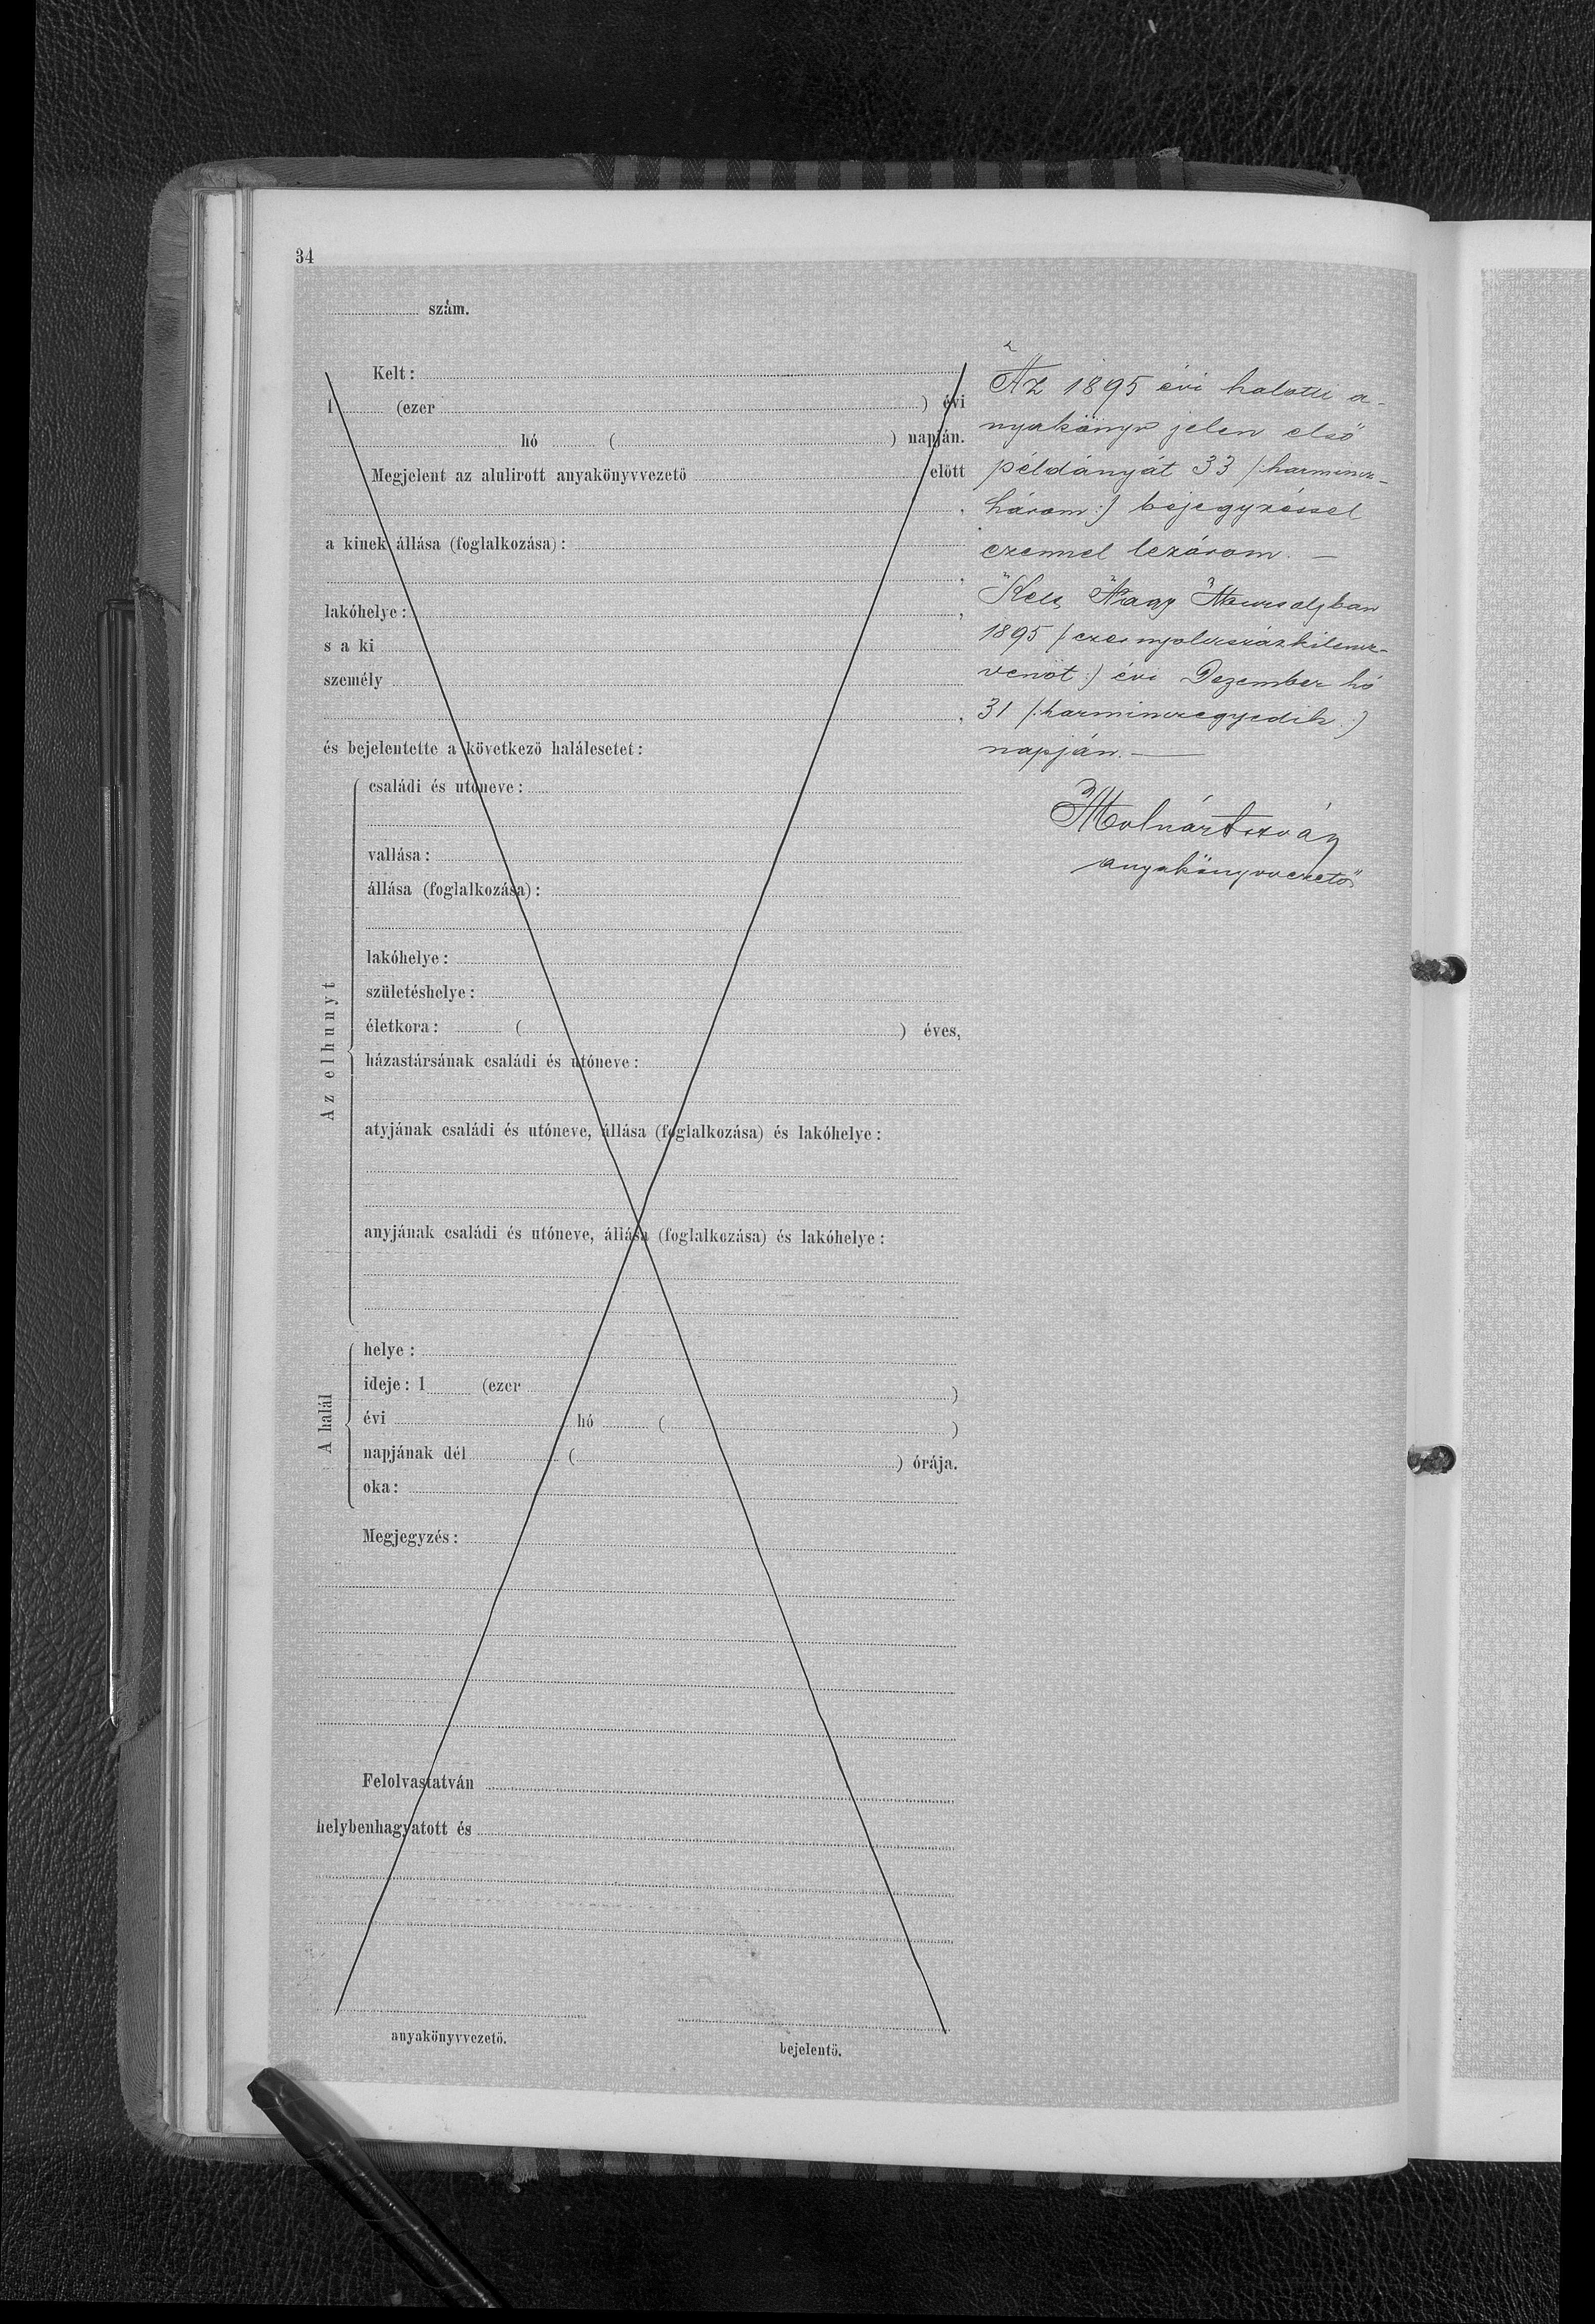 34
szám.
Kelt:
1 (ezer ) évi
hó ( ) napján.
Megjelent az alulirott anyakönyvvezető előtt
,
a kinek állása (foglalkozása):
,
lakóhelye: ,
s a ki
személy
,
és bejelentette a következő halálesetet:
Az elhunyt
családi és utóneve:
vallása:
állása (foglalkozása):
lakóhelye:
születéshelye:
életkora: ( ) éves,
házastársának családi és utóneve:
atyjának családi és utóneve, állása (foglalkozása) és lakóhelye:
anyjának családi és utóneve, állása (foglalkozása) és lakóhelye:
A halál
helye:
ideje: 1 (ezer )
évi hó ( )
napjának dél ( ) órája.
oka:
Megjegyzés:
Felolvastatván
helybenhagyatott és
anyakönyvvezető.
bejelentő.
Az 1895 évi halotti a-
nyakönyv jelen első
példányát 33 /:harmincz-
három:/ bejegyzéssel
ezennel lezárom. —
Kelt, Nagy
1895 /:ezernyolczszázkilencz-
venöt:/ évi Dezember hó
31 /:harminczegyedik:/
napján. —
Molnár István
anyakönyvvezető